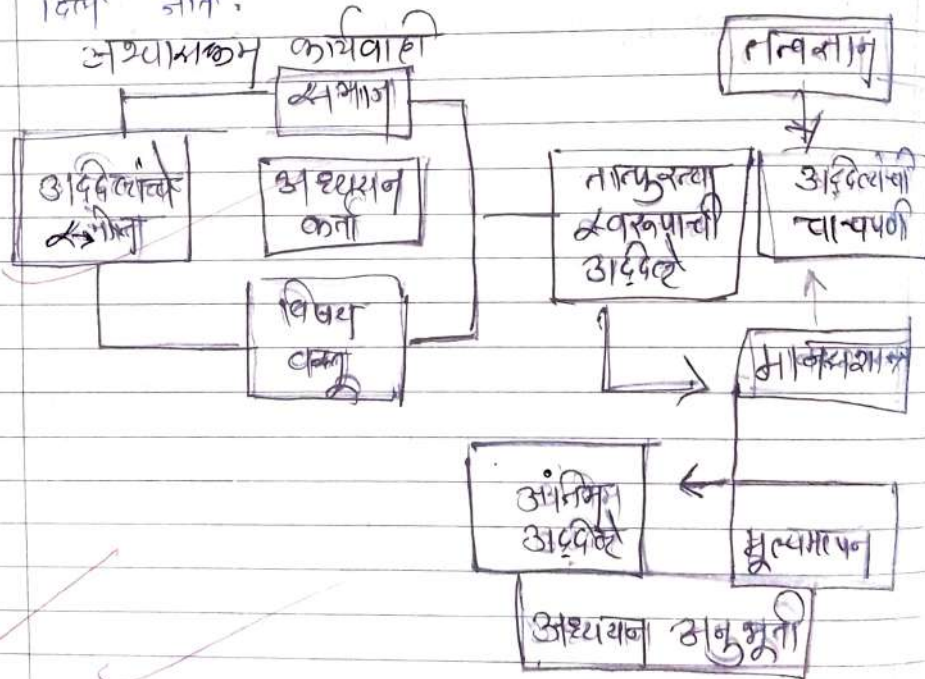 दिले जाते.
अभ्यासक्रम कार्यवाही
समाज
तत्वज्ञान
उद्दिष्टांचे
स्त्रोत
अध्ययन
कर्ता
तात्पुरत्या
स्वरूपाची
उद्दिष्टे
उद्दिष्टांची
चाचपणी
विषय
वस्तू
मानसशास्त्र
अंतिम
उद्दिष्टे
मूल्यमापन
अध्ययन अनुभूती